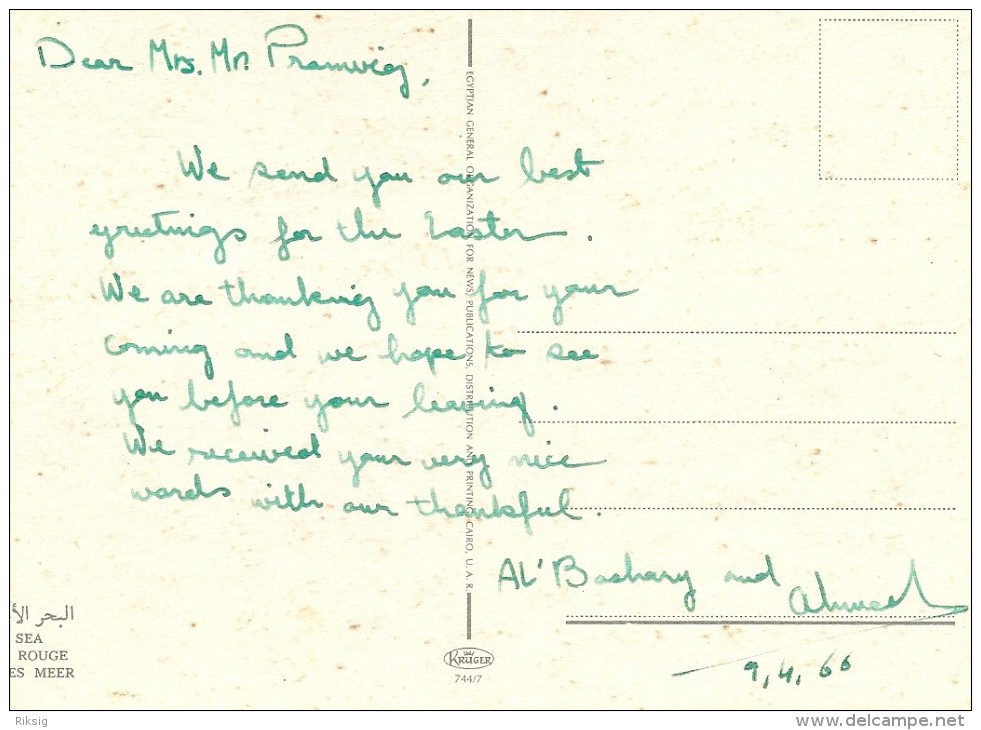 Dear Mrs. Mr. Pramvieg,
We send you our best
greetings for the Easter.
We are thanking you for your
coming and we hope to see
you before your leaving.
We received your very nice
words with our thankful.
AL' Bashary and Ahmed
9,4,66
EGYPTIAN GENERAL ORGANIZATION FOR NEWS, PUBLICATIONS, DISTRIBUTION AND PRINTING, CAIRO, U.A.R.
البحر الأ
SEA
ROUGE
ES MEER
KRÜGER
744/7
Riksig
www.delcampe.net